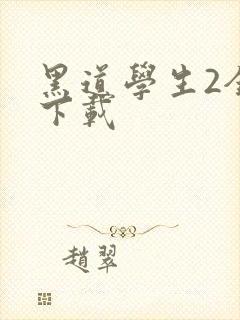 黑道學生2全
下載
趙翠